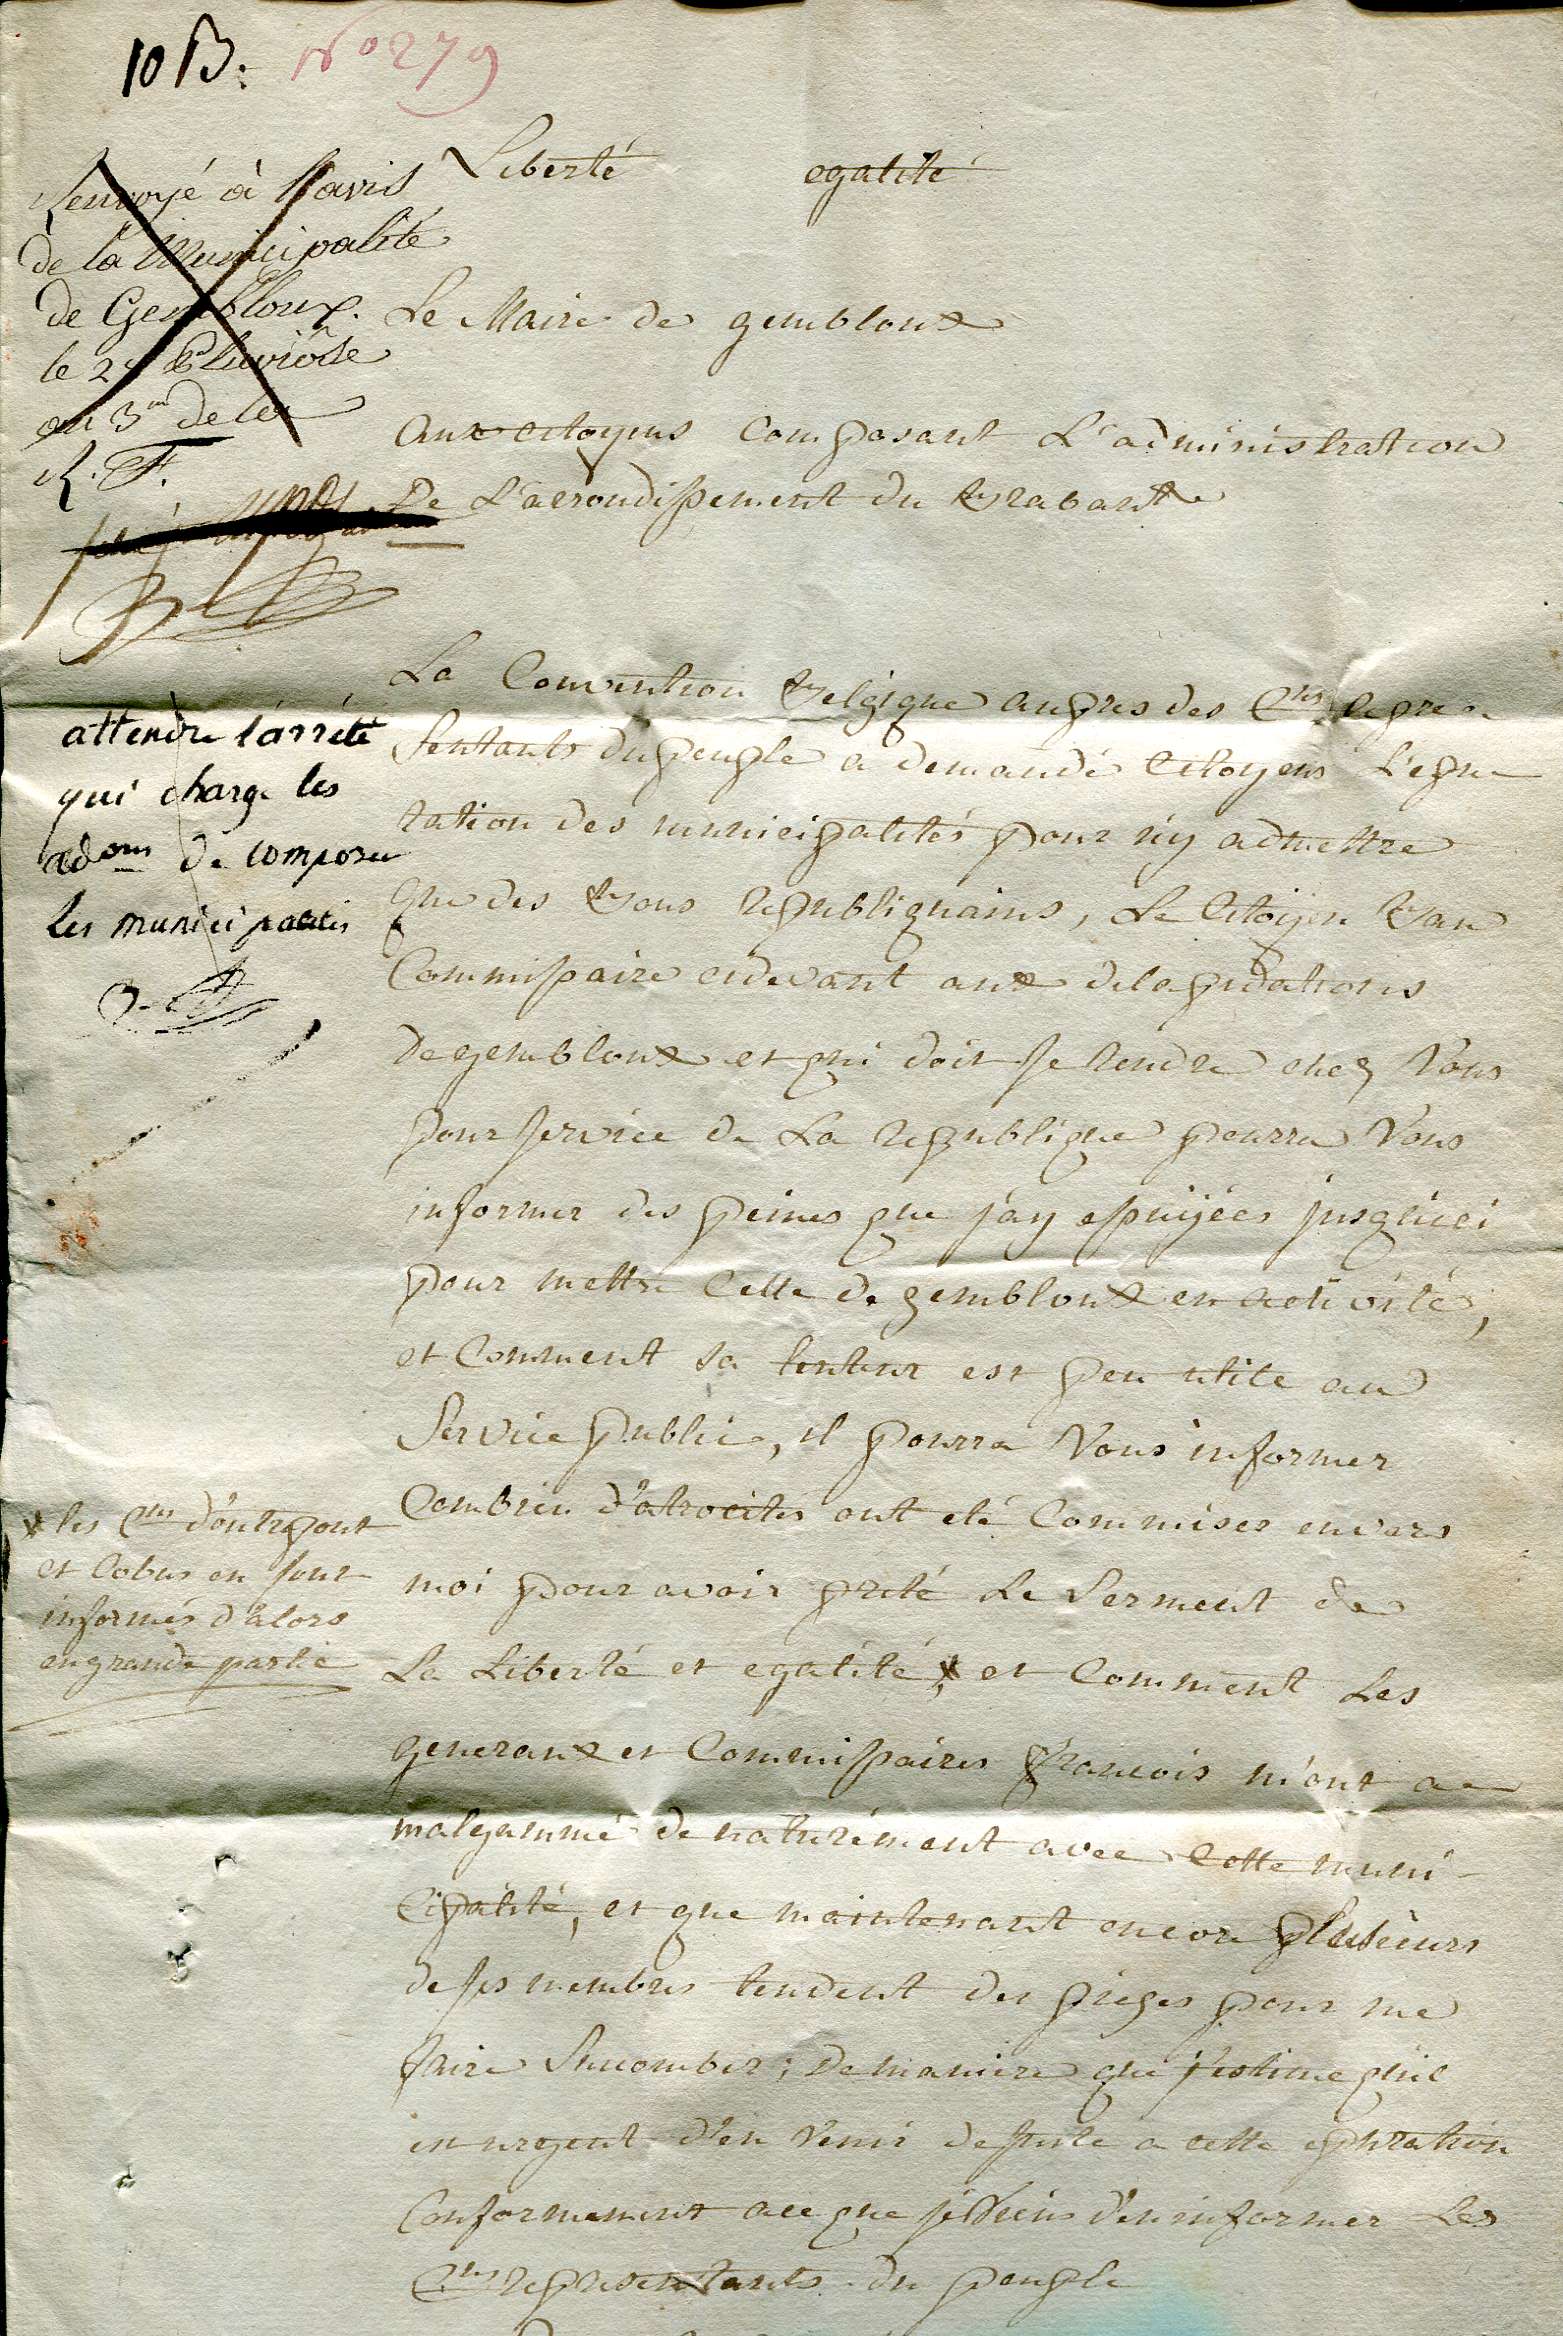 10 B:
N° 279
Liberté egalité
Renvoyé à l'avis
de la Municipalité
de Gembloux.
le 25 Pluviôse
an 3me de la
R. F.
Le Maire de gembloux
Aux citoyens Composant L'administration
De L'arrondissement du Brabant
attendre l'arrêté
qui charge les
adons de composer
les municipalités
La Convention Belgique aupres des Cns repre-
sentants du peuple a demandé Citoyens L'epu-
ration des municipalités pour n'y admettre
que des bons republiquains, Le Citoyen Bau
Commissaire cidevant aux delapidations
de gembloux et qui doit se rendre chez Vous
pour service de La republique pourra Vous
informer des peines que j'ay essuijées jusqu'ici
pour mettre Celle de gembloux en activité,
et Comment sa lenteur est peu utile au
Service public, il pourra Vous informer
Combien d'atrocités ont eté Commises envers
moi pour avoir preté Le Serment de
La Liberté et egalité, * et Comment Les
generaux et Commissaires francois m'ont a-
malgammé denaturément avec Cette muni-
Cipalité, et que maintenant encore plusieurs
de ses membres tendent des pieges pour me
faire Succomber; de maniere que j'estime qu'il
est urgent d'en Venir de suite a cette epuration
Conformement a ce que je viens d'en informer Les
Cns representants du peuple
* les Cns d'outrepont
et Cobus en sont
informés d'alors
en grande partie